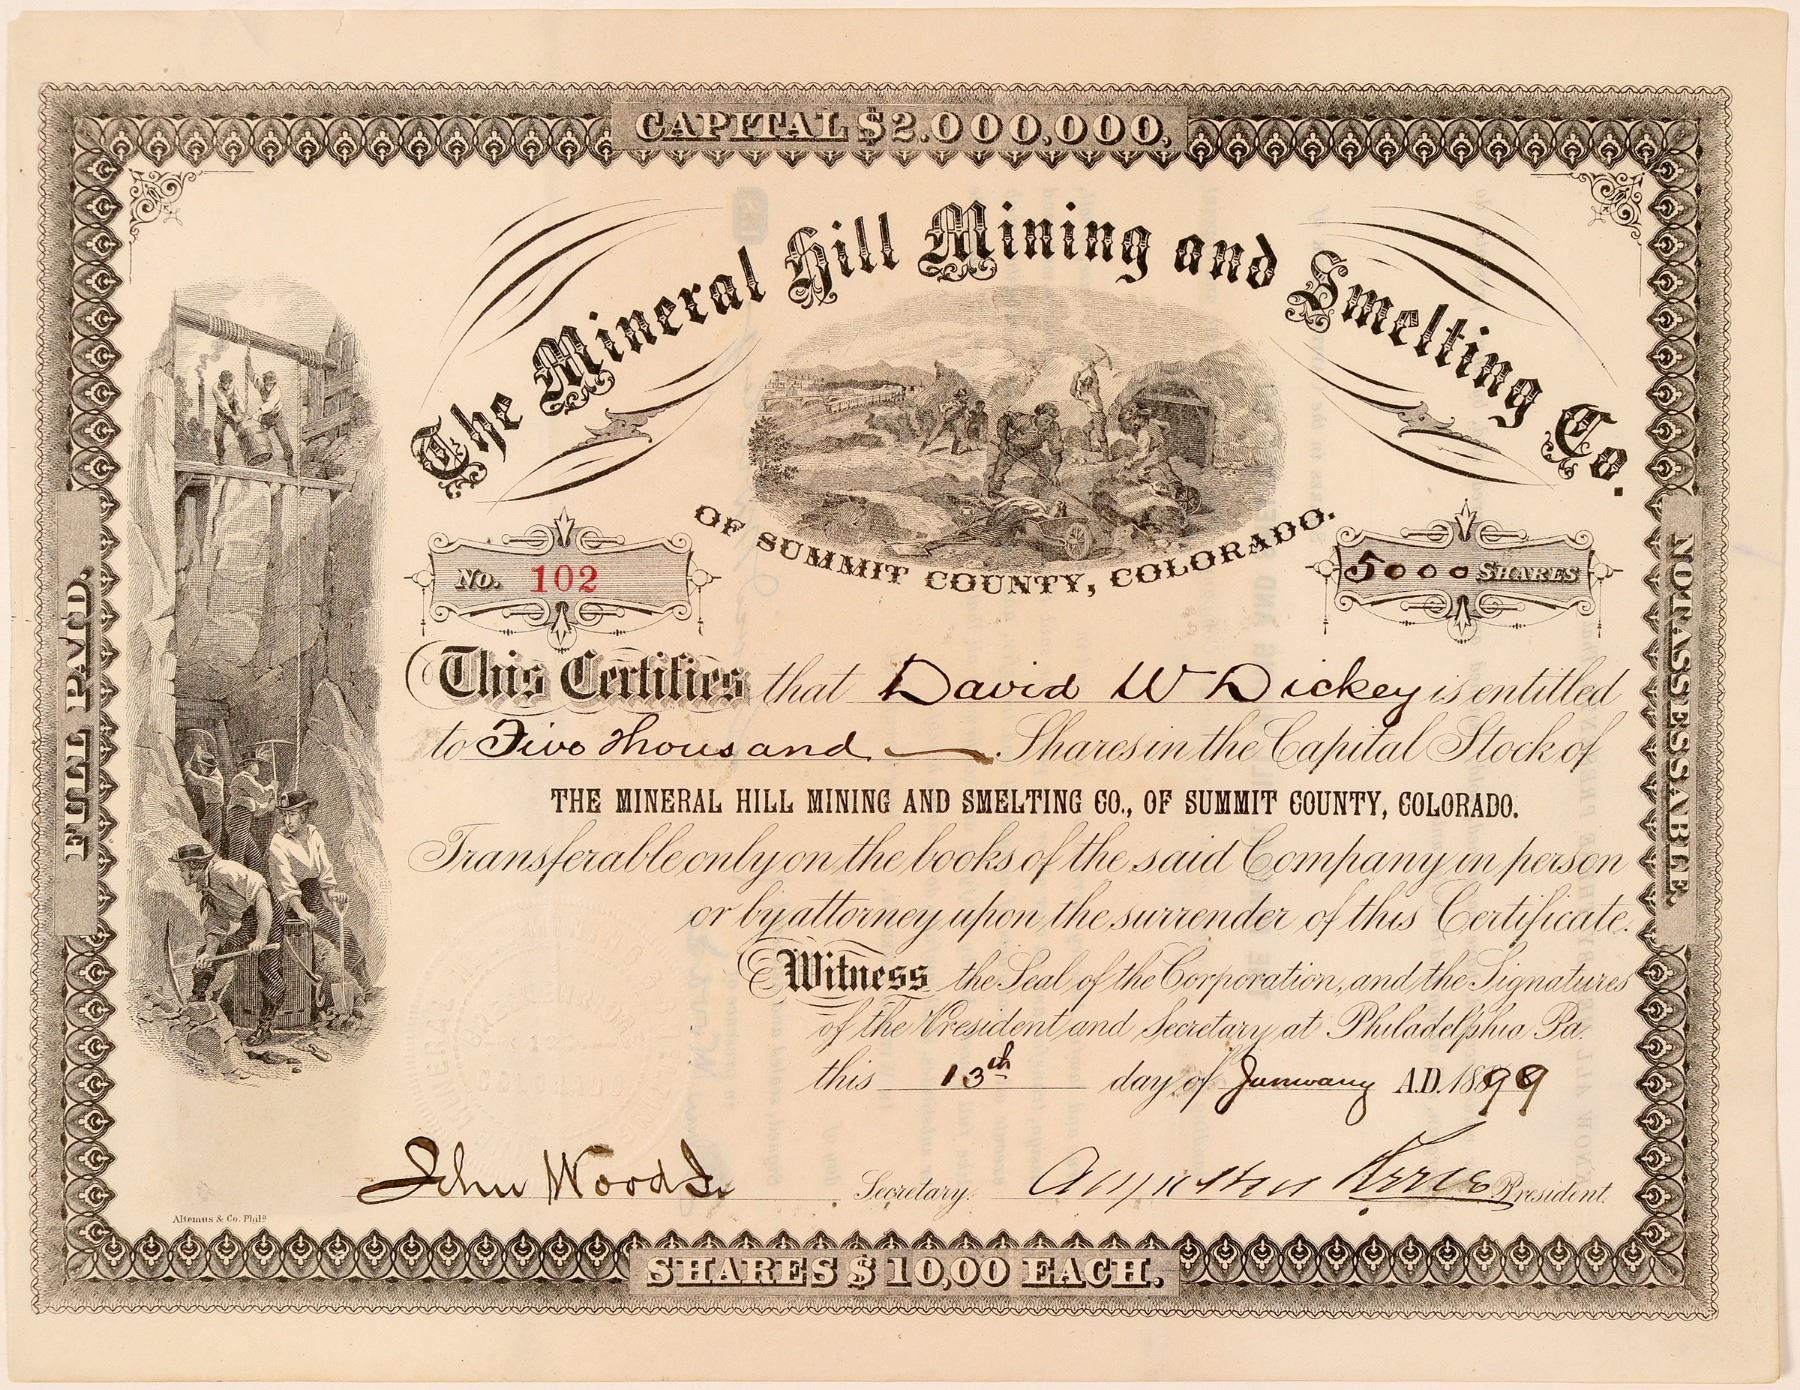 CAPITAL $2.000,000,
The Mineral Hill Mining and Smelting Co.
OF SUMMIT COUNTY, COLORADO.
No. 102
5000 SHARES
FULL PAID.
NOT ASSESSABLE.
This Certifies that David W Dickey is entitled
to Five Thousand Shares in the Capital Stock of
THE MINERAL HILL MINING AND SMELTING CO., OF SUMMIT COUNTY, COLORADO.
Transferable only on the books of the said Company in person
or by attorney upon the surrender of this Certificate.
Witness the Seal of the Corporation, and the Signatures
of the President and Secretary, at Philadelphia Pa.
this 13th day of January A.D. 1899
John Wood Jr Secretary. President.
Altemus & Co. Phila
SHARES $10,00 EACH.